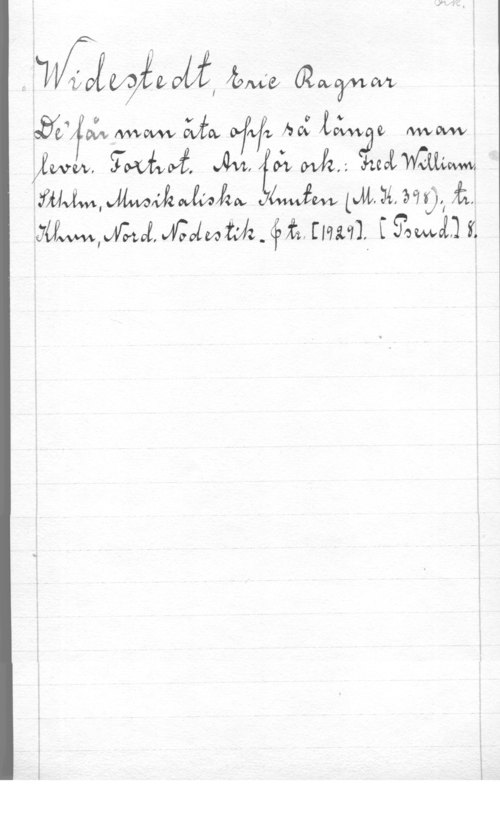 Ork.
Widestedt, Eric Ragnar
De' får man äta opp så länge man
lever. Foxtrot. Arr. för ork.: Fred William.
Sthlm, Musikaliska Knuten (M.K. 398), tr.
Khvn, Nord. Nodestik. ptr. [1929]. [Pseud.] 8.